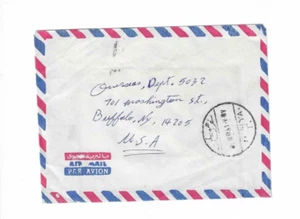 Overseas, Dept. 5032
701 Washington St.,
Buffalo, Ny. 14205
U.S.A
بالبريد الجوى
AIR MAIL
PAR AVION